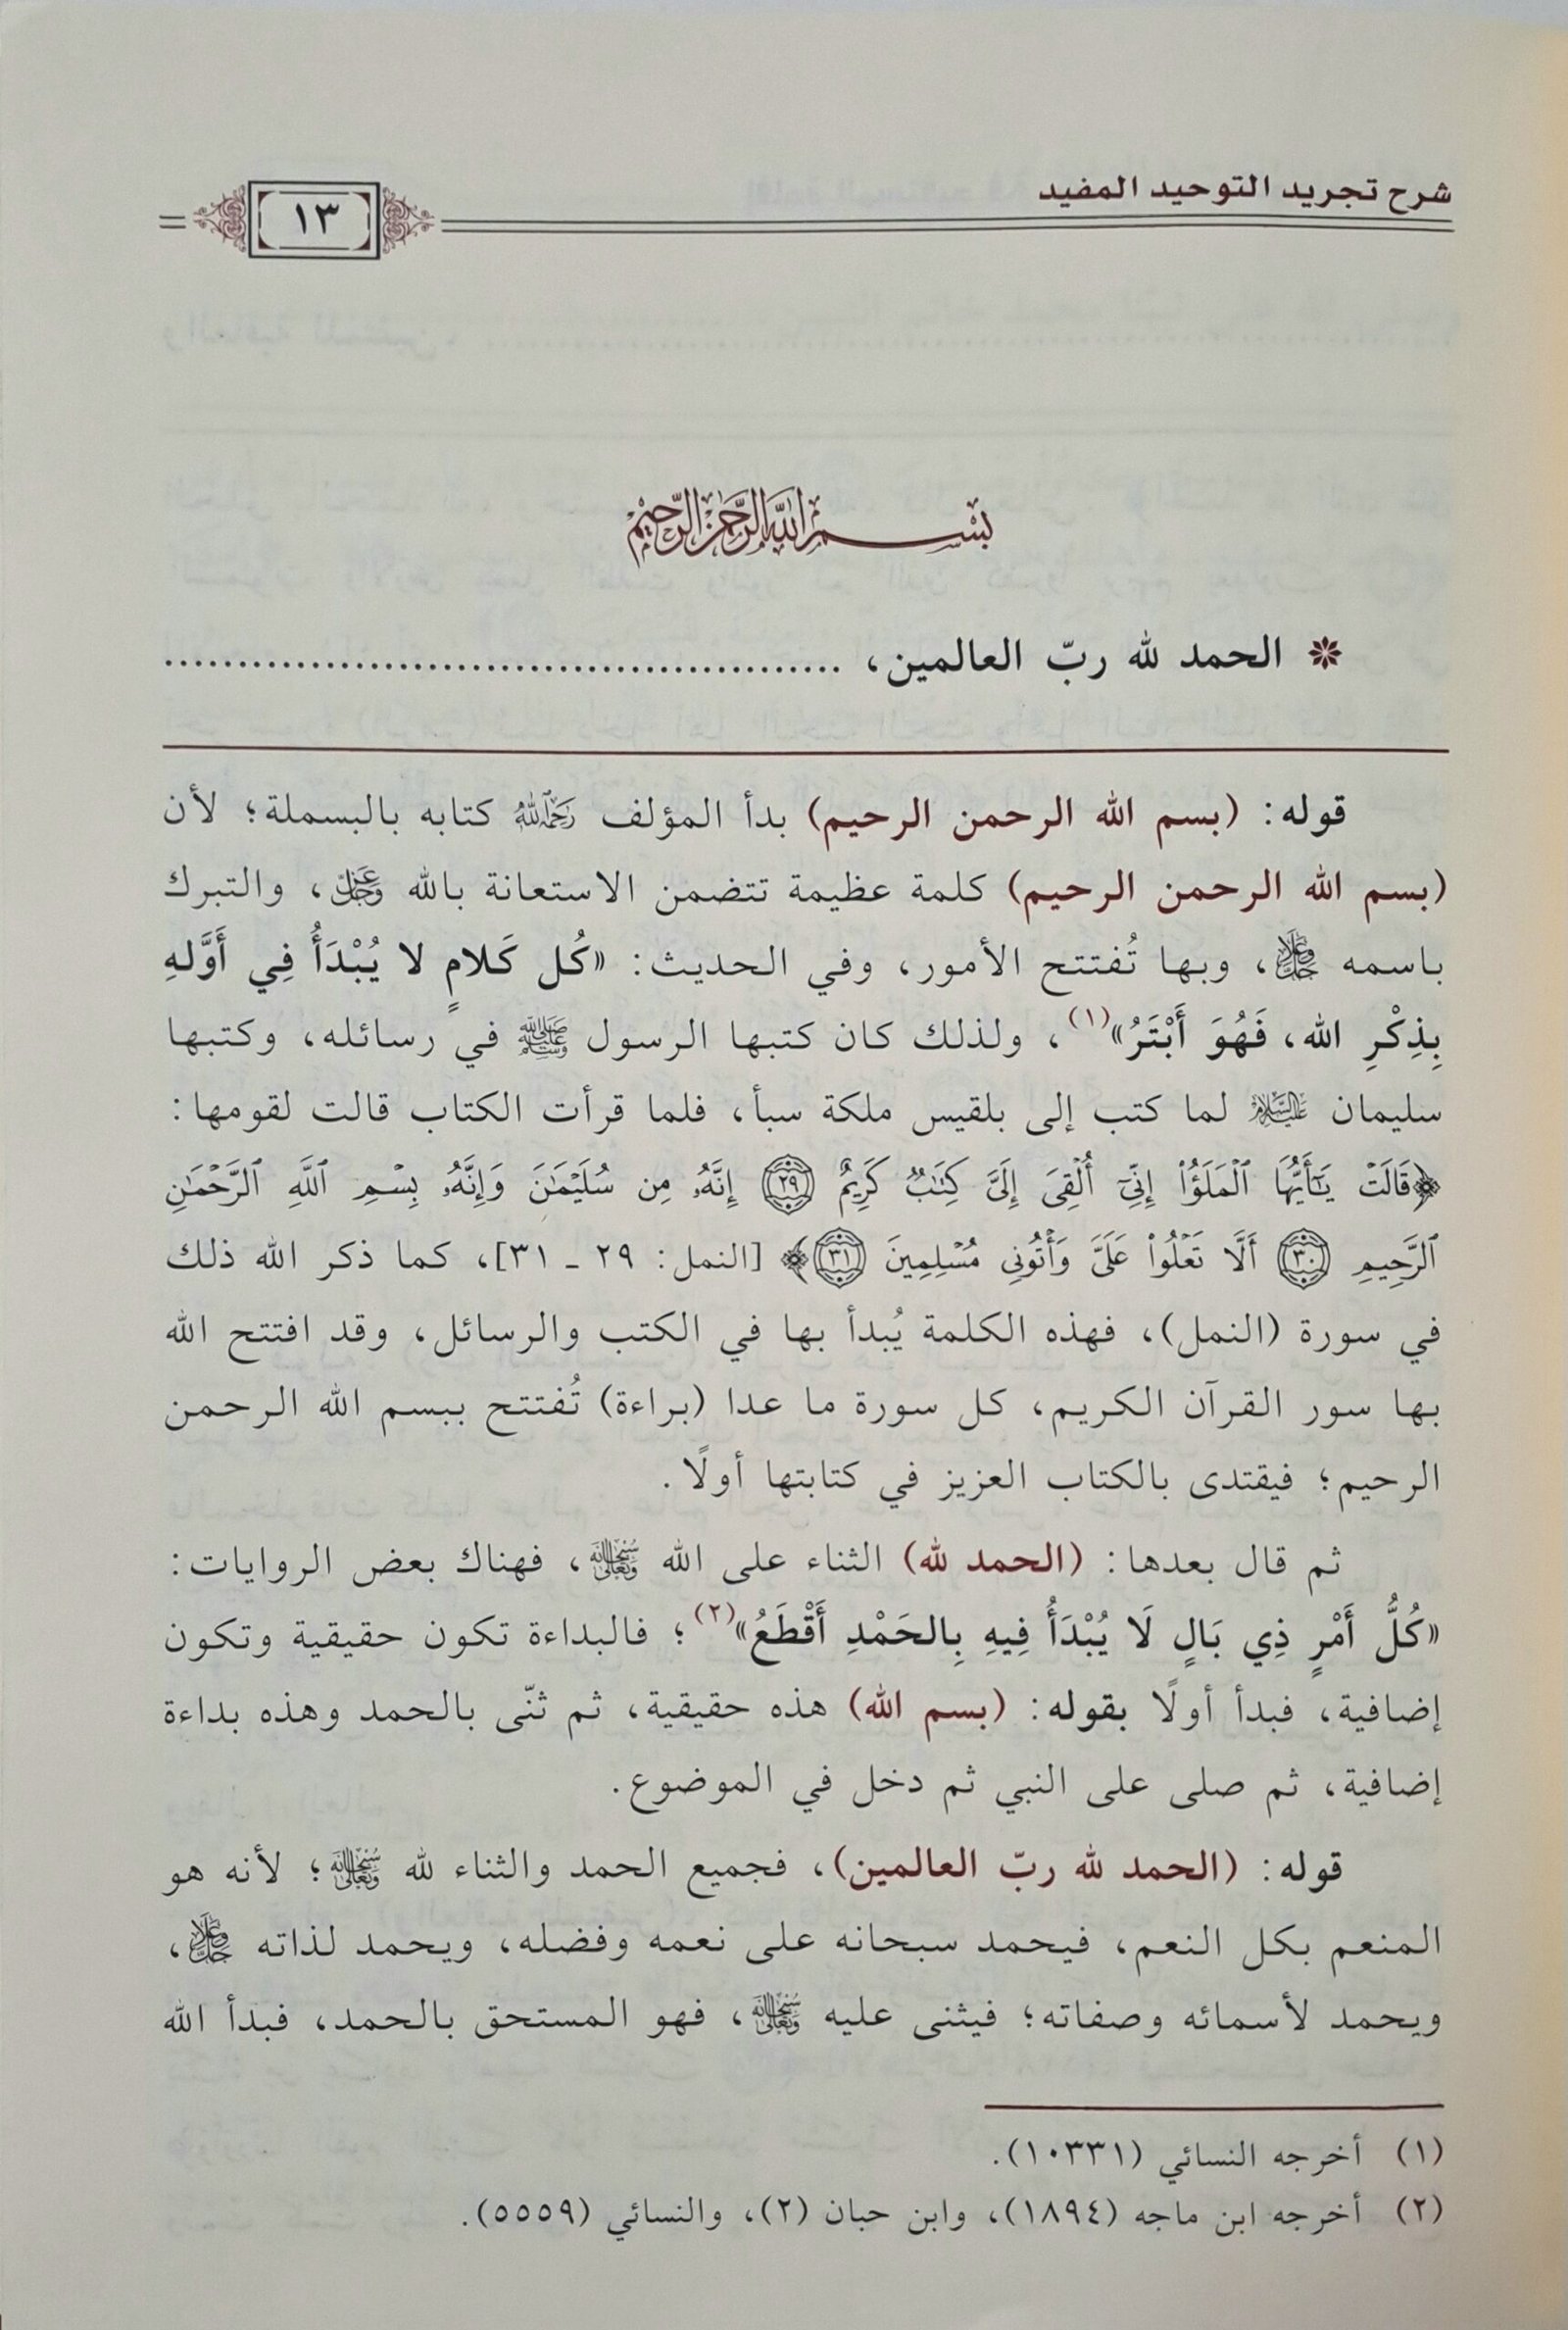 شرح تجريد التوحيد المفيد
١٣
بسم الله الرحمن الرحيم
❋ الحمد لله ربّ العالمين، ..............................................
قوله: (بسم الله الرحمن الرحيم) بدأ المؤلف رَحِمَهُ اللَّهُ كتابه بالبسملة؛ لأن
(بسم الله الرحمن الرحيم) كلمة عظيمة تتضمن الاستعانة بالله عَزَّ وَجَلَّ، والتبرك
باسمه جَلَّ وَعَلَا، وبها تُفتتح الأمور، وفي الحديث: «كُل كَلامٍ لا يُبْدَأُ فِي أَوَّلهِ
بِذِكْرِ الله، فَهُوَ أَبْتَرُ»(١)، ولذلك كان كتبها الرسول ﷺ في رسائله، وكتبها
سليمان عَلَيْهِ السَّلَامُ لما كتب إلى بلقيس ملكة سبأ، فلما قرأت الكتاب قالت لقومها:
﴿قَالَتْ يَٰٓأَيُّهَا ٱلْمَلَؤُا۟ إِنِّىٓ أُلْقِىَ إِلَىَّ كِتَٰبٌ كَرِيمٌ ٢٩ إِنَّهُۥ مِن سُلَيْمَٰنَ وَإِنَّهُۥ بِسْمِ ٱللَّهِ ٱلرَّحْمَٰنِ
ٱلرَّحِيمِ ٣٠ أَلَّا تَعْلُوا۟ عَلَىَّ وَأْتُونِى مُسْلِمِينَ ٣١﴾ [النمل: ٢٩ ـ ٣١]، كما ذكر الله ذلك
في سورة (النمل)، فهذه الكلمة يُبدأ بها في الكتب والرسائل، وقد افتتح الله
بها سور القرآن الكريم، كل سورة ما عدا (براءة) تُفتتح ببسم الله الرحمن
الرحيم؛ فيقتدى بالكتاب العزيز في كتابتها أولًا.
ثم قال بعدها: (الحمد لله) الثناء على الله سُبْحَانَهُ وَتَعَالَى، فهناك بعض الروايات:
«كُلُّ أَمْرٍ ذِي بَالٍ لَا يُبْدَأُ فِيهِ بِالحَمْدِ أَقْطَعُ»(٢)؛ فالبداءة تكون حقيقية وتكون
إضافية، فبدأ أولًا بقوله: (بسم الله) هذه حقيقية، ثم ثنّى بالحمد وهذه بداءة
إضافية، ثم صلى على النبي ثم دخل في الموضوع.
قوله: (الحمد لله ربّ العالمين)، فجميع الحمد والثناء لله سُبْحَانَهُ وَتَعَالَى؛ لأنه هو
المنعم بكل النعم، فيحمد سبحانه على نعمه وفضله، ويحمد لذاته جَلَّ وَعَلَا،
ويحمد لأسمائه وصفاته؛ فيثنى عليه سُبْحَانَهُ وَتَعَالَى، فهو المستحق بالحمد، فبدأ الله
(١) أخرجه النسائي (١٠٣٣١).
(٢) أخرجه ابن ماجه (١٨٩٤)، وابن حبان (٢)، والنسائي (٥٥٥٩).